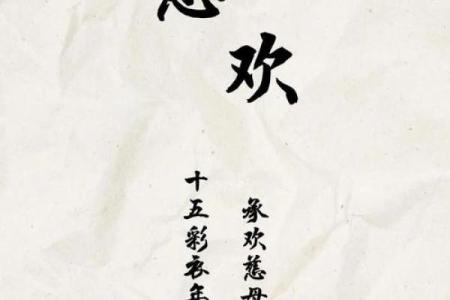 欢
十五彩衣年
承欢慈母